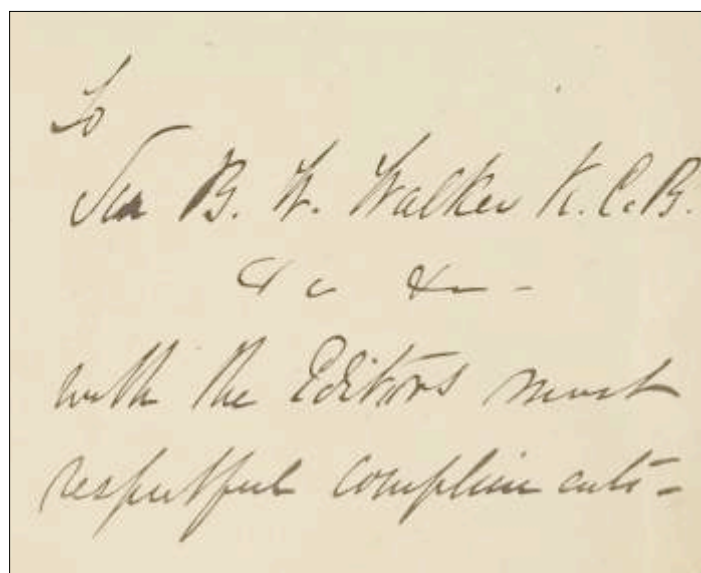 To
Sir B. W. Walker K.C.B.
&c &c -
with the Editors most
respectful compliments -